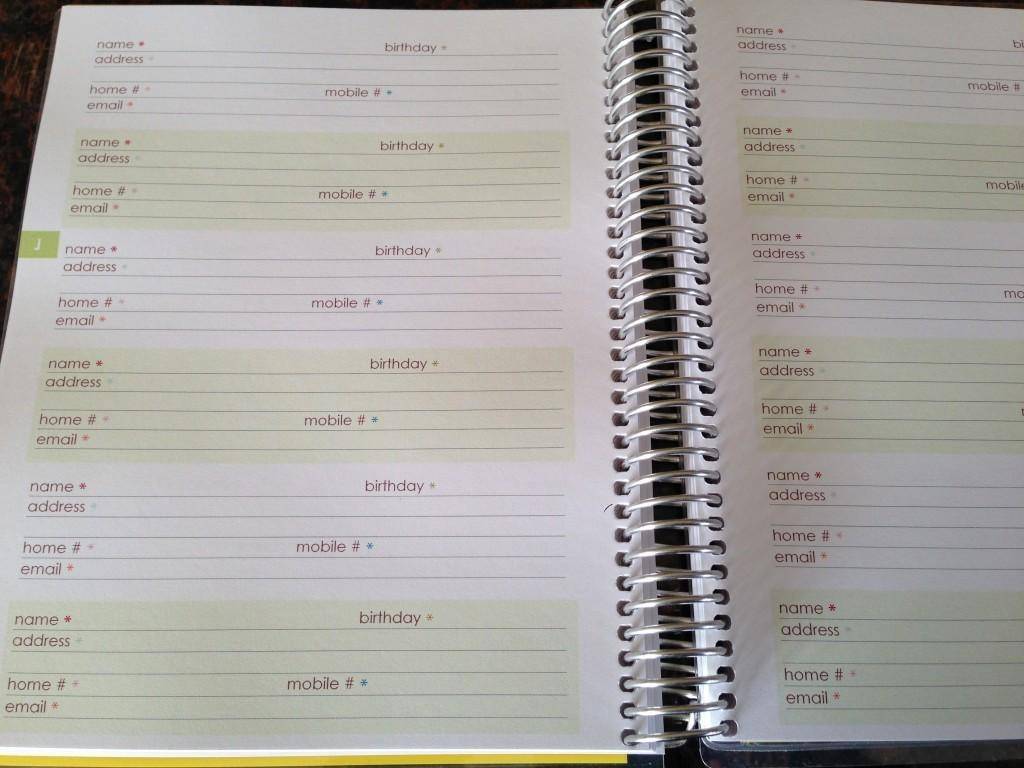 name * birthday *
address *
home # * mobile # *
email *
name * birthday *
address *
home # * mobile # *
email *
J
name * birthday *
address *
home # * mobile # *
email *
name * birthday *
address *
home # * mobile # *
email *
name * birthday *
address *
home # * mobile # *
email *
name * birthday *
address *
home # * mobile # *
email *
name *
address * bi
home # *
email * mobile #
name *
address *
home # *
email * mobile
name *
address *
home # *
email * mo
name *
address *
home # *
email *
name *
address *
home # *
email *
name *
address *
home # *
email *